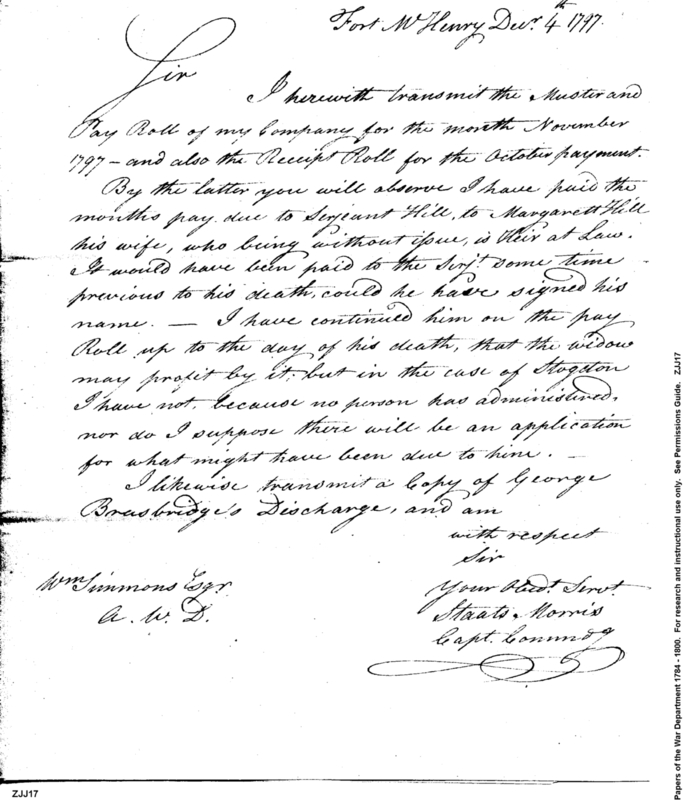 Fort McHenry Decr. 4th 1797.
Sir
I herewith transmit the Muster and
Pay Roll of my Company for the month November
1797 – and also the Receipt Roll for the October payment.
By the latter you will observe I have paid the
months pay due to Serjeant Hill, to Margarett Hill
his wife, who being without issue, is Heir at Law.
It would have been paid to the Serjt. some time
previous to his death, could he have signed his
name. — I have continued him on the pay
Roll up to the day of his death, that the widow
may profit by it; but in the case of Stogdon
I have not, because no person has administered,
nor do I suppose there will be an application
for what might have been due to him. —
I likewise transmit a Copy of George
Brasbridge's Discharge, and am
with respect
Sir
Your Obedt. Servt.
Staats Morris
Capt. Commdg
Wm Simmons Esqr
A. W. D.
Papers of the War Department 1784 - 1800. For research and instructional use only. See Permissions Guide. ZJJ17
ZJJ17